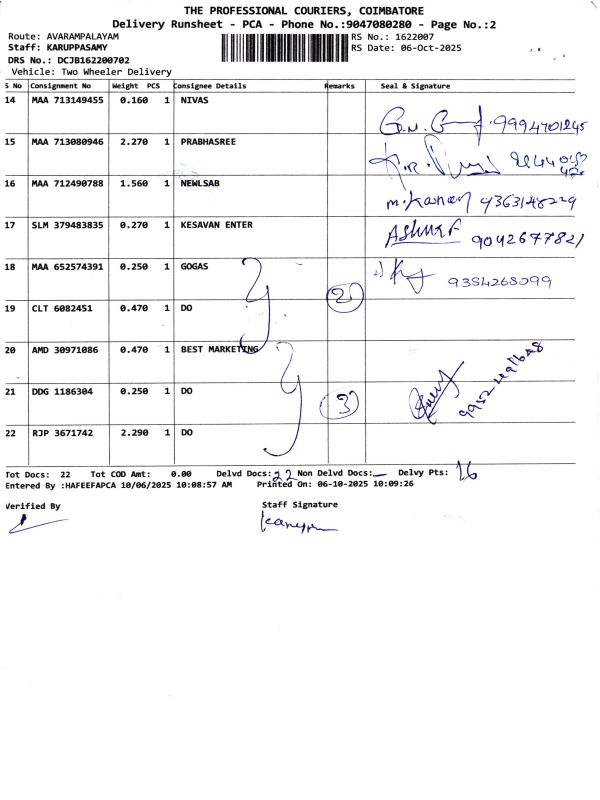 THE PROFESSIONAL COURIERS, COIMBATORE
Delivery Runsheet - PCA - Phone No.:9047080280 - Page No.:2
Route: AVARAMPALAYAM RS No.: 1622007
Staff: KARUPPASAMY RS Date: 06-Oct-2025
DRS No.: DCJB162200702
Vehicle: Two Wheeler Delivery
S No Consignment No Weight PCS Consignee Details Remarks Seal & Signature
14 MAA 713149455 0.160 1 NIVAS
15 MAA 713080946 2.270 1 PRABHASREE
16 MAA 712490788 1.560 1 NEWLSAB
m.kanan
17 SLM 379483835 0.270 1 KESAVAN ENTER ASHIKF 9042677821
18 MAA 652574391 0.250 1 GOGAS 2 9384268099
19 CLT 6082451 0.470 1 DO
20 AMD 30971086 0.470 1 BEST MARKETING
21 DDG 1186304 0.250 1 DO 3
22 RJP 3671742 2.290 1 DO
Tot Docs: 22 Tot COD Amt: 0.00 Delvd Docs: 22 Non Delvd Docs: — Delvy Pts: 16
Entered By :HAFEEFAPCA 10/06/2025 10:08:57 AM Printed On: 06-10-2025 10:09:26
Verified By Staff Signature